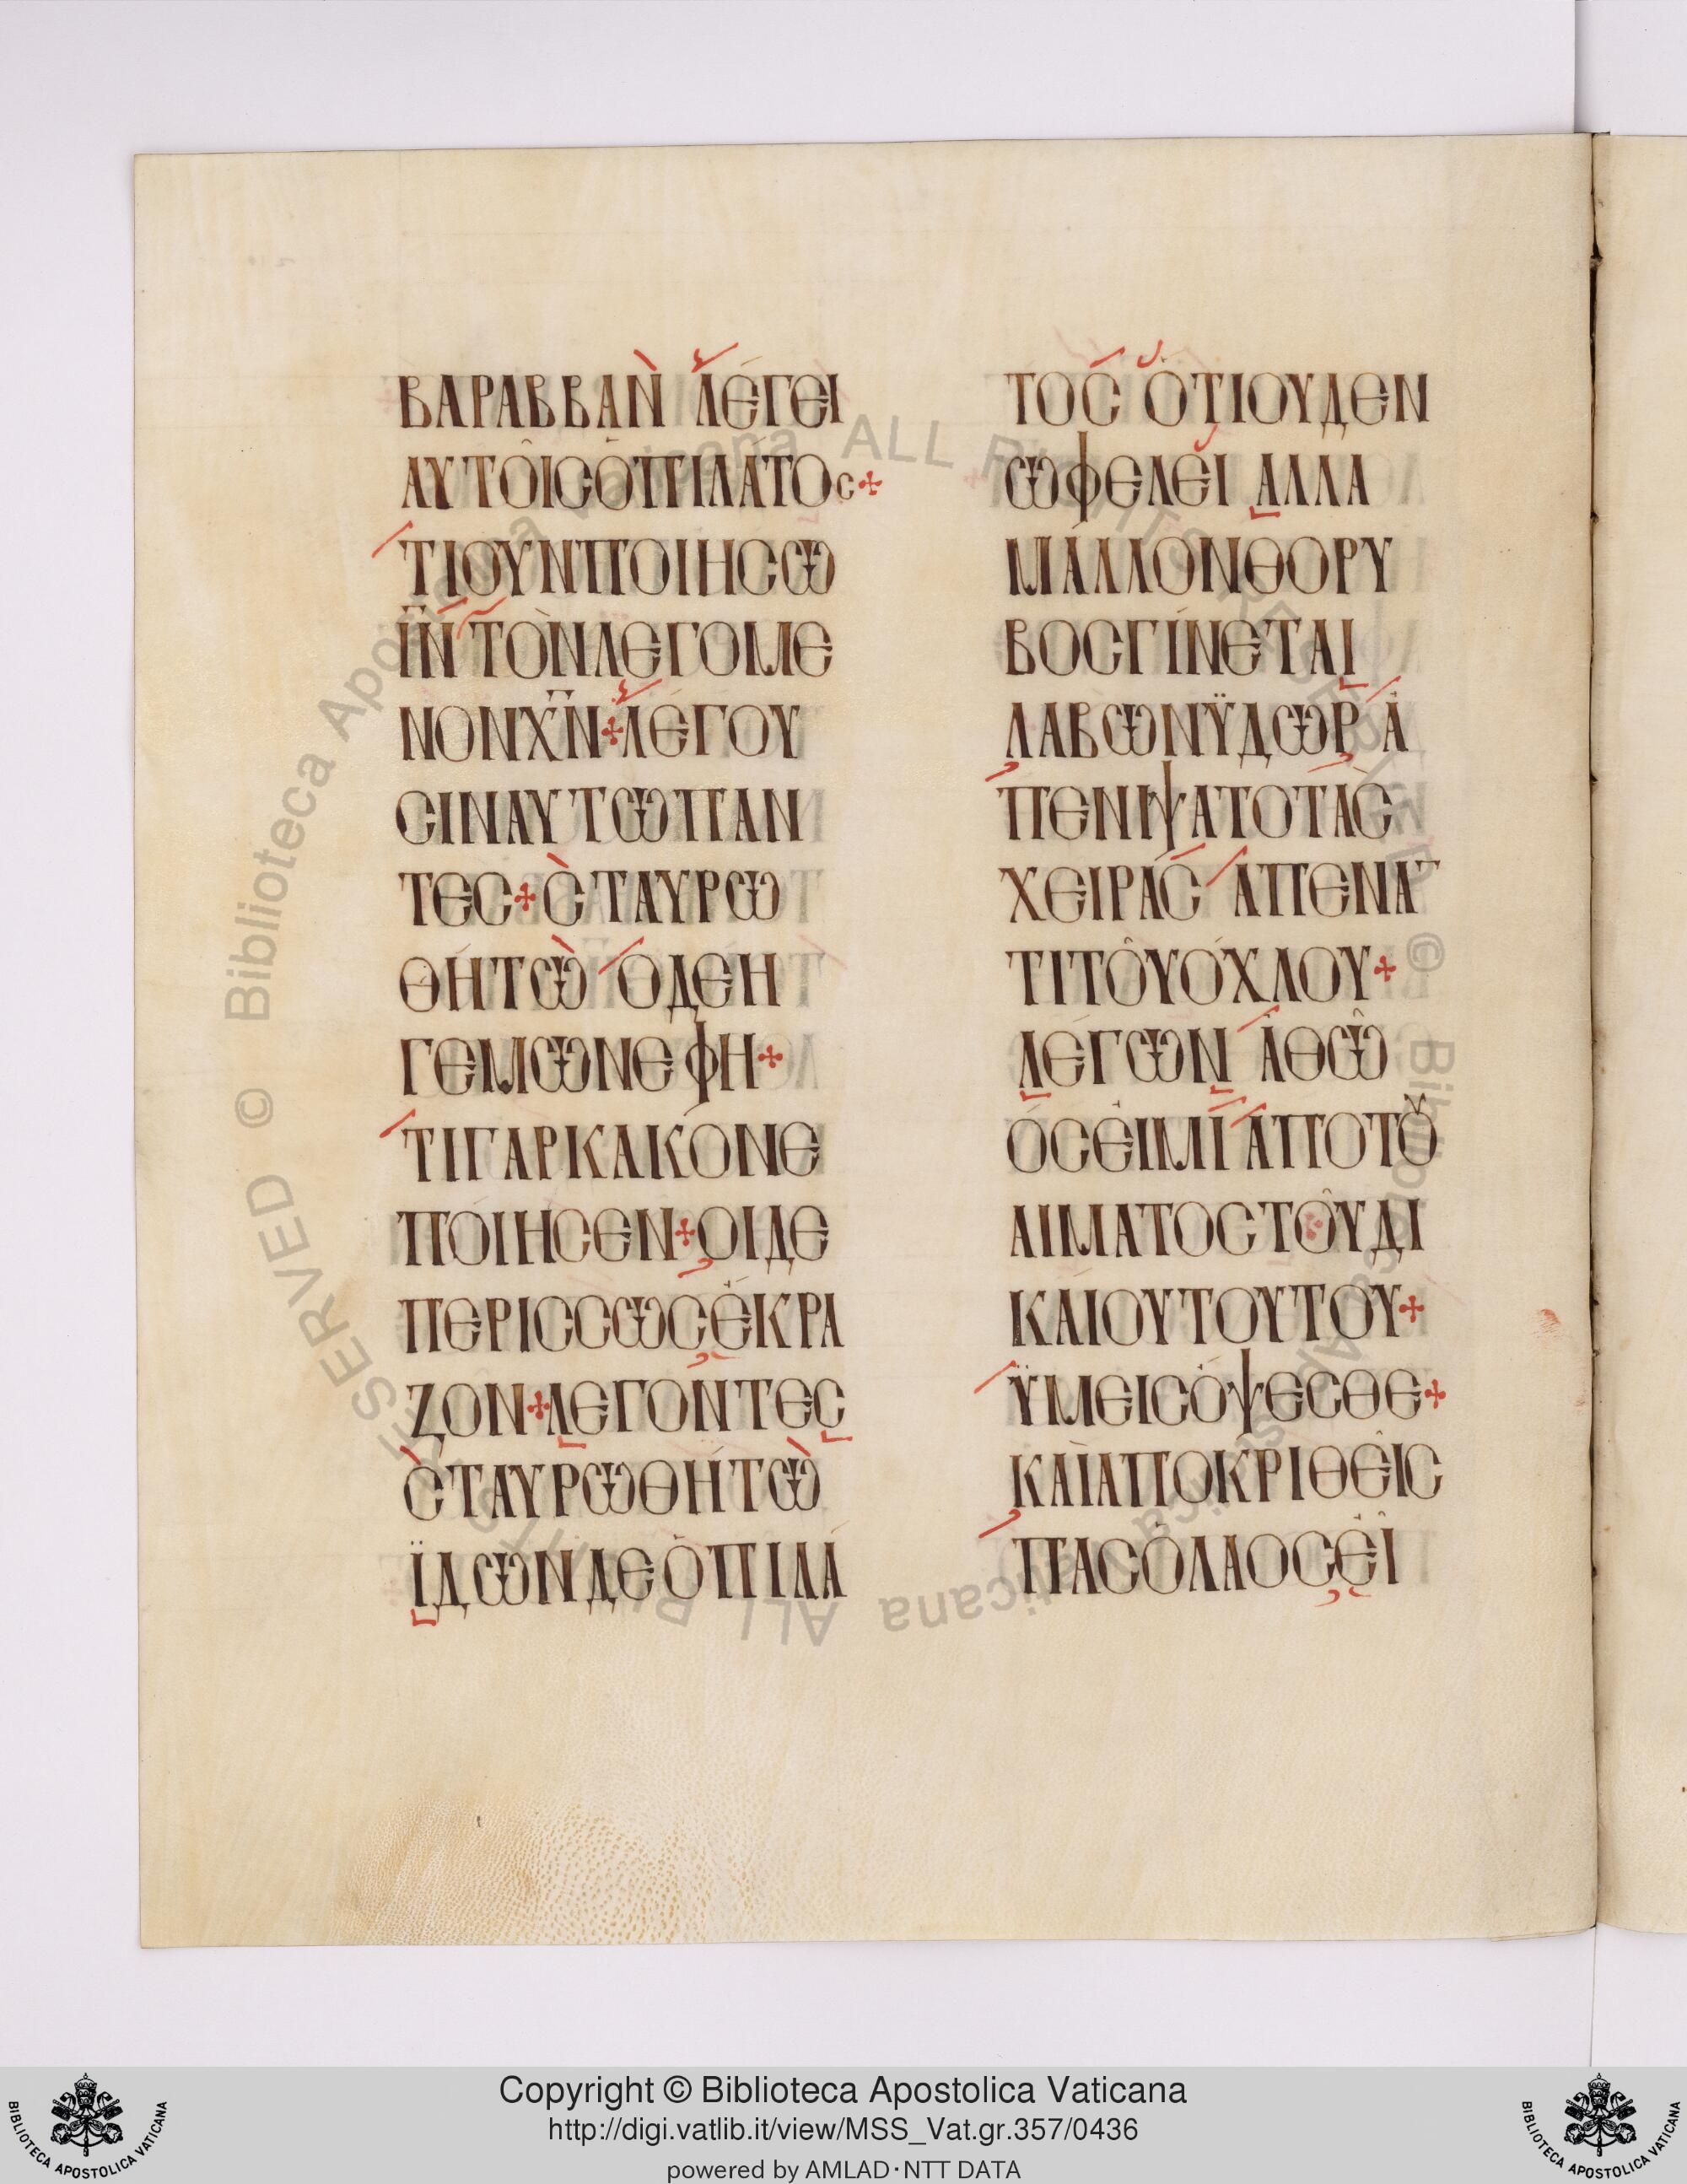 ΒΑΡΑΒΒΑΝ̀ ΛΈΓΕΙ
ΑΥΤΟΙ͂CὉΠΙΛΑ͂ΤΟC
ΤΙΟΥΝΠΟΙΗCΩ
ΙΝ̅ ΤῸΝΛΕΓΟΜΕ
ΝΟΝΧΝ̅ ΛΈΓΟΥ
CΙΝΑΥΤΩΠΑΝ
ΤΕC CΤΑΥΡΩ
ΘΉΤΩ ὉΔΕΗ
ΓΕΜΩΝΕΦΗ
ΤΙΓΑΡΚΑΚΌΝΕ
ΠΟΊΗCΕΝ ΟΙΔΕ
ΠΕΡΙCCΩCἜΚΡΑ
ΖΟΝ ΛΕΓΟΝΤΕC
CΤΑΥΡΩΘΉΤΩ
ΪΔΩΝΔΕὉΠΙΛΆ
ΤΟC ὍΤΙΟΥΔΕΝ
ΩΦΕΛΕΙ͂ ΑΛΛΑ
ΜΆΛΛΟΝΘΟΡΥ
ΒΟCΓΊΝΕΤΑΙ
ΛΑΒῺΝΫΔΩΡ Ἀ
ΠΕΝΊΨΑΤΟΤᾺC
ΧΕΙΡΑC ΑΠΕΝΑΤ
ΤΙΤΟΥ͂ΟΧΛΟΥ
ΛΈΓΩΝ ἈΘΩ͂
ΌCΕἸΜΙ ΑΠΟΤΟΥ
ΑΙΜΑΤΟCΤΟΥ͂ΔΙ
ΚΑΊΟΥΤΟΥΤΟΥ
ΫΜΕΙCΌΨΕCΘΕ
ΚΑῚΑΠΟΚΡΙΘΕῚC
ΠΑCὉΛΑΟCΕἾ
Biblioteca Apostolica Vaticana ALL RIGHTS RESERVED ©
Copyright © Biblioteca Apostolica Vaticana
http://digi.vatlib.it/view/MSS_Vat.gr.357/0436
powered by AMLAD・NTT DATA
BIBLIOTECA APOSTOLICA VATICANA
BIBLIOTECA APOSTOLICA VATICANA